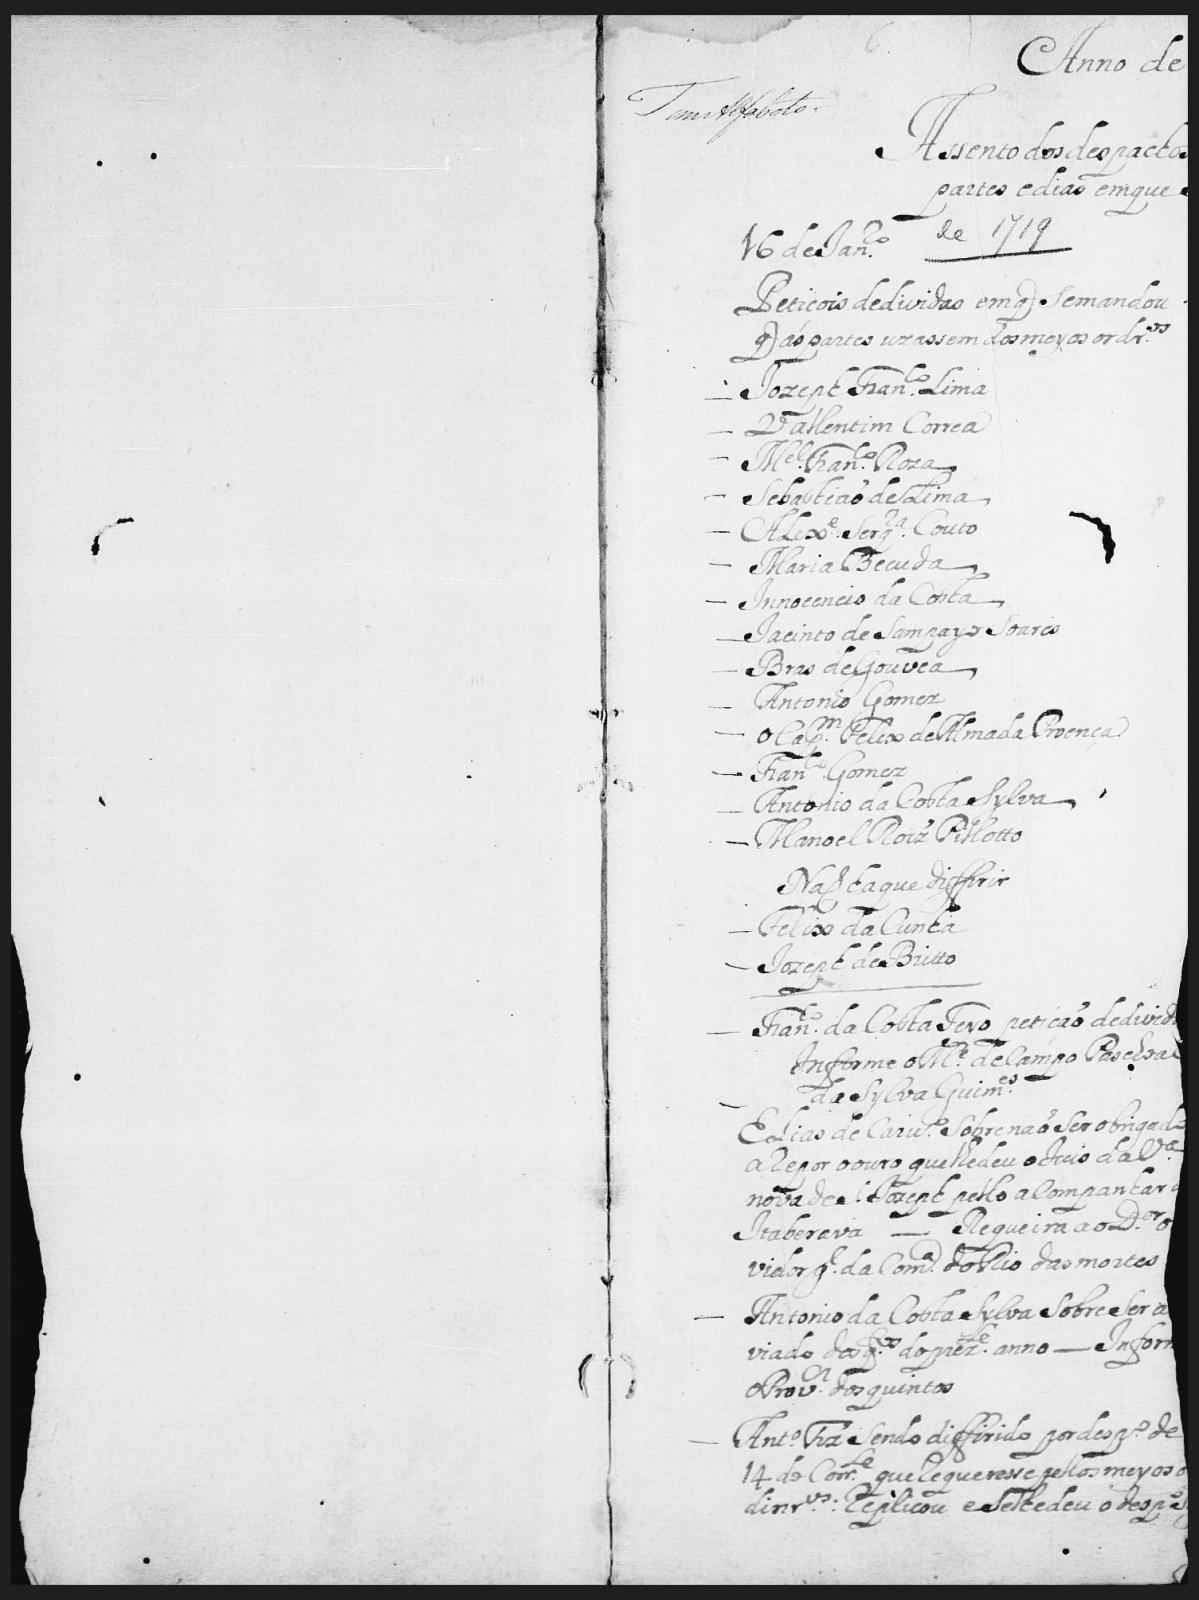 Anno de
Tem Alfabeto.
Assento dos despachos
partes e dias em que
16 de Janr.º de 1719
Peticois de dividas em q̃ se mandou
q̃ ás partes uzassem dos meyos ordr.ºs
– Jozeph Fran.co Lima
– Vallentim Correa
– M.el Fran.co Roza
– Sebastiaõ de Lima
– Alex.e Serq.ra Couto
– Maria Becuda
– Innocencio da Costa
– Jacinto de Sampayo Soares
– Bras de Gouvea
– Antonio Gomez
– o Cap.m Felix de Almada Proença
– Fran.co Gomez
– Antonio da Costa Sylva
– Manoel Roiz Pillotto
Naõ ha que differir
– Felix da Cunha
– Jozeph de Britto
– Fran.co da Costa Feyo petiçaõ de divid
Informe o M.e de Campo Paschoal
da Sylva Guim.es
– Elias de Carv.º sobre naõ ser obrigado
a repor o ouro que lhe deu o Juis da V.a
nova de S. Jozeph pello acompanhar
Itaberava — Requeira ao D.or o
vidor g.l da Com.a do Rio das mortes
– Antonio da Costa Sylva sobre ser a
viado dos q.tos do prez.te anno — Inform
o Prov.or dos quintos
– Ant.º Frz̃ sendo differido por desp.º de
14 do Corr.te que requeresse pellos meyos o
dinr.ºs: Replicou e se lhe deu o desp.º